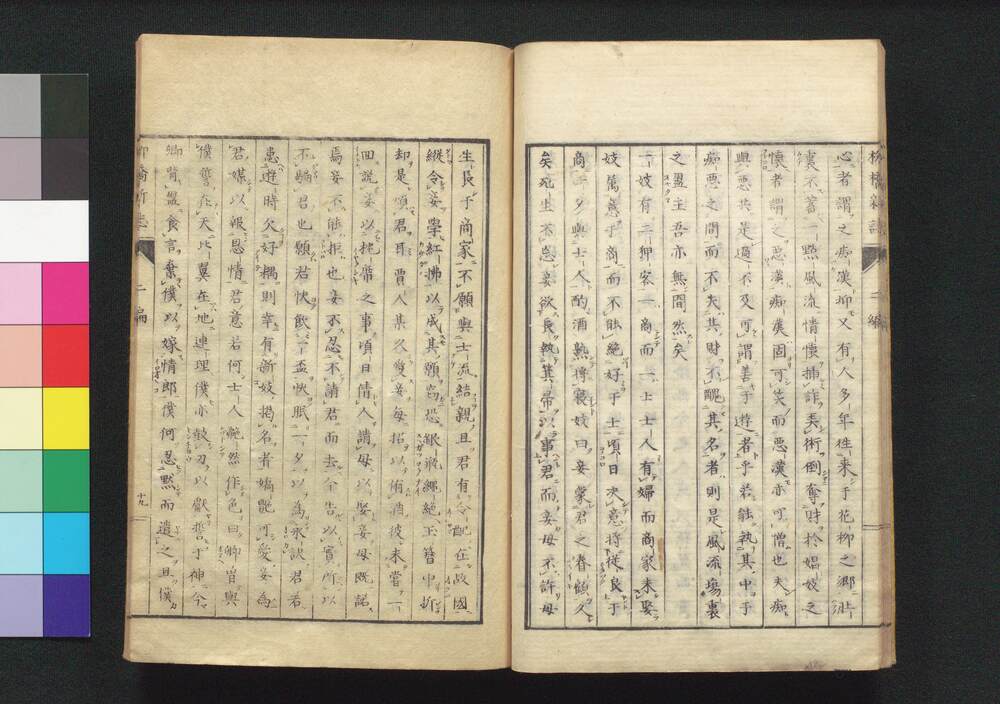 柳橋新誌 二編
心者謂之痴漢抑又有人多年往来于花柳之郷而
懐不蓄一點風流情懐挿詐美術倒奪財於娼妓之
懐者謂之悪漢痴漢固可笑而悪漢亦可憎也夫痴
與悪共是過不及可謂善于遊者乎若能執其中于
痴悪之間而不失其財不醜其名者則是風流場裏
之盟主吾亦無間然矣
一妓有二狎客一商而一士士人有婦而商家未娶
妓属意于商而不能絶好于士頃日決意将従良于
商一夕與士人酌酒熟将寝妓曰妾蒙君之眷顧久
矣死生不忘妾欲長執箕帚以事君而妾母不許母
生長于商家不願與士流結親且君有令配在故國
縦令妾學紅拂以成其願窃恐銀瓶縄絶玉簪中折
却是煩君耳賈人某久愛妾毎招以侑酒彼未嘗一
回説妾以枕席之事頃日倩人請母以娶妾母既諾
焉妾不能拒也妾不忍不請君而去今告以實所以
不騙君也願君快飲一盃快眠一夕以為永訣君若
患遊時欠好耦則幸有新妓掲名者嬌艶可愛妾為
君媒以報恩情君意若何士人艴然作色曰卿曽與
僕誓在天比翼在地連理僕亦鼓刃以歃誓于神今
卿背盟食言棄僕以嫁情郎僕何忍黙而遣之且僕
柳橋新誌 二編 十九